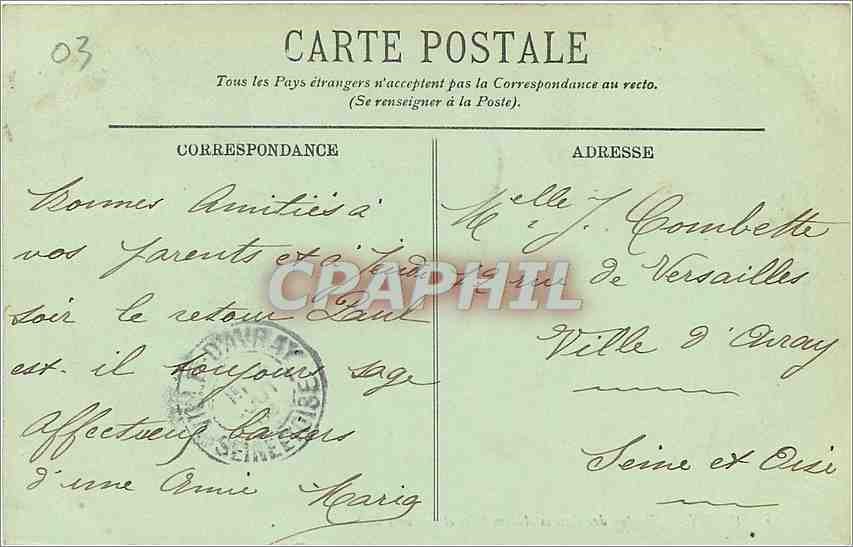 03
CARTE POSTALE
Tous les Pays étrangers n'acceptent pas la Correspondance au recto.
(Se renseigner à la Poste).
CORRESPONDANCE
Bonnes Amitiés à
vos parents et à Jeudi
soir le retour Paul
est-il toujours sage
Affectueux baisers
d'une Amie Maria
ADRESSE
Melle J. Combette
rue de Versailles
Ville d'Avray
Seine et Oise
VILLE D'AVRAY
SEINE ET OISE
CPAPHIL